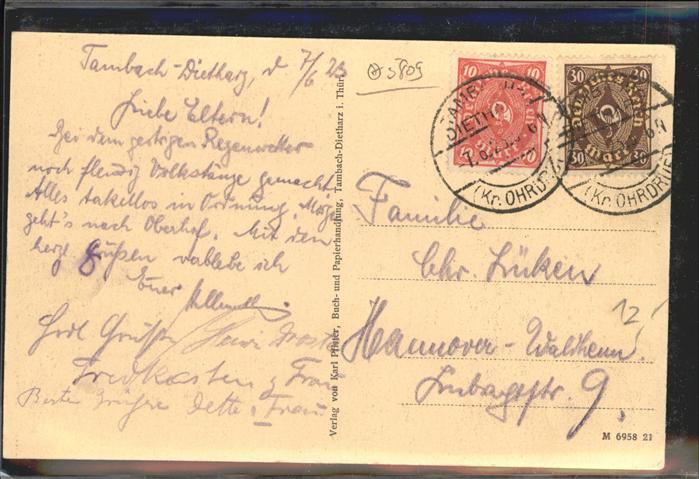 Tambach-Dietharz, d 7/6 23
Liebe Eltern!
Bei dem gestrigen Regenwetter
noch fleißig Volkstänze gemacht.
Alles tadellos in Ordnung. Morgen
geht's nach Oberhof. Mit den
herzl. Grüßen verbleibe ich
Euer
Herzl Grüße
Fredkasten u Frau
Besten Grüße Dette u. Frau
Verlag von Karl Pfister, Buch- und Papierhandlung, Tambach-Dietharz i. Thür.
5809
10 10
30 30
Deutsches Reich
30 Mark 30
TAMBACH
DIETHARZ
7.6.23
(Kr. OHRDRUF)
(Kr. OHRDRUF)
Familie
Chr. Lüken
Hannover-Waldheim
9.
12
M 6958 21